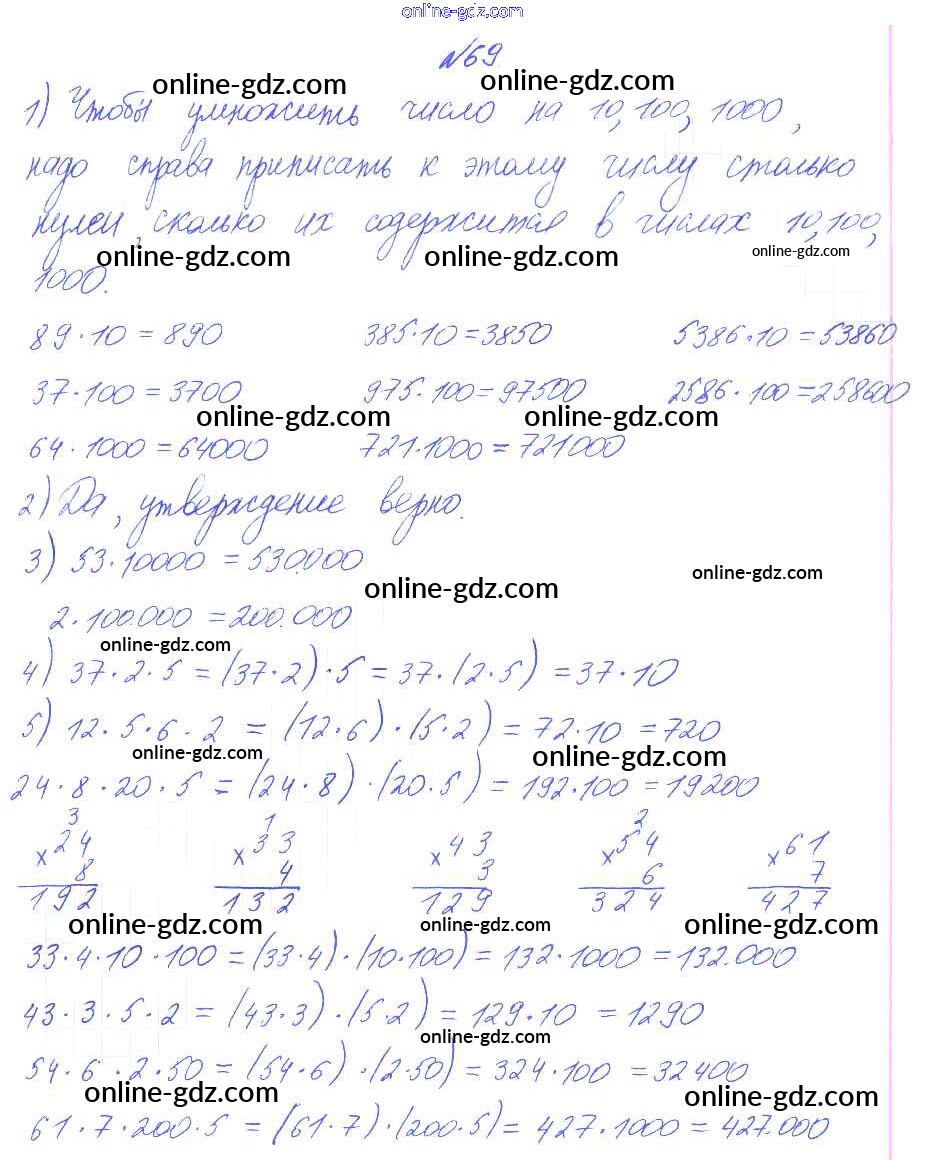 online-gdz.com
№69
online-gdz.com online-gdz.com
1) Чтобы умножить число на 10, 100, 1000,
надо справа приписать к этому числу столько
нулей, сколько их содержится в числах 10, 100,
online-gdz.com online-gdz.com online-gdz.com
1000.
89·10 = 890 385·10=3850 5386·10 = 53860
37·100 = 3700 975·100=97500 2586·100=258600
online-gdz.com online-gdz.com
64·1000=64000 721·1000=721000
2) Да, утверждение верно.
3) 53·10000 = 530.000
online-gdz.com online-gdz.com
2·100.000 = 200.000
online-gdz.com
4) 37·2·5 = (37·2)·5 = 37·(2·5) = 37·10
5) 12·5·6·2 = (12·6)·(5·2) = 72·10 = 720
online-gdz.com online-gdz.com
24·8·20·5 = (24·8)·(20·5) = 192·100 = 19200
3 1 2
×24 ×33 ×43 ×54 ×61
8 4 3 6 7
192 132 129 324 427
online-gdz.com online-gdz.com online-gdz.com
33·4·10·100 = (33·4)·(10·100) = 132·1000 = 132.000
43·3·5·2 = (43·3)·(5·2) = 129·10 = 1290
online-gdz.com
54·6·2·50 = (54·6)·(2·50) = 324·100 = 32400
online-gdz.com online-gdz.com
61·7·200·5 = (61·7)·(200·5) = 427·1000 = 427.000